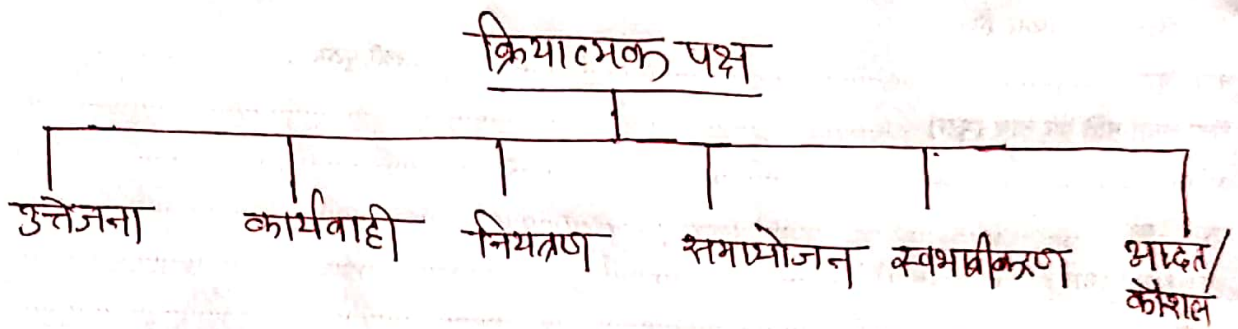 क्रियात्मक पक्ष
उत्तेजना कार्यवाही नियत्रण समायोजन स्वभावीकरण आदत/
कौशल